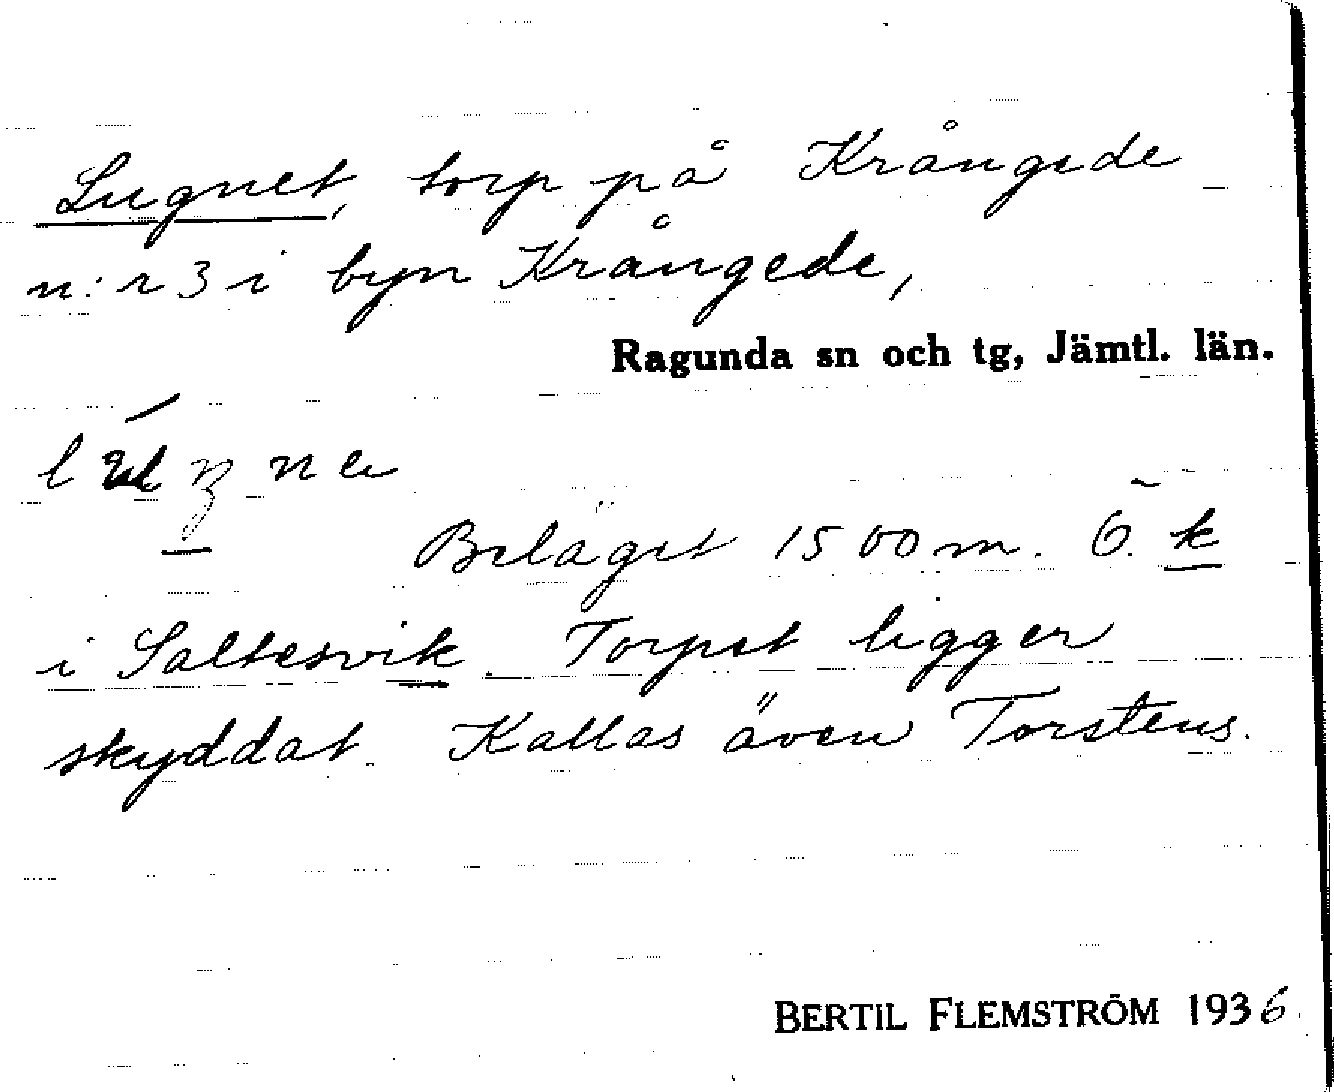 Lugnet, torp på Krångede
n:r 3 i byn Krångede,
Ragunda sn och tg, Jämtl. län.
Beläget 1500 m. Ö. k
i Saltesvik. Torpet ligger
skyddat. Kallas även Torstens.
BERTIL FLEMSTRÖM 1936